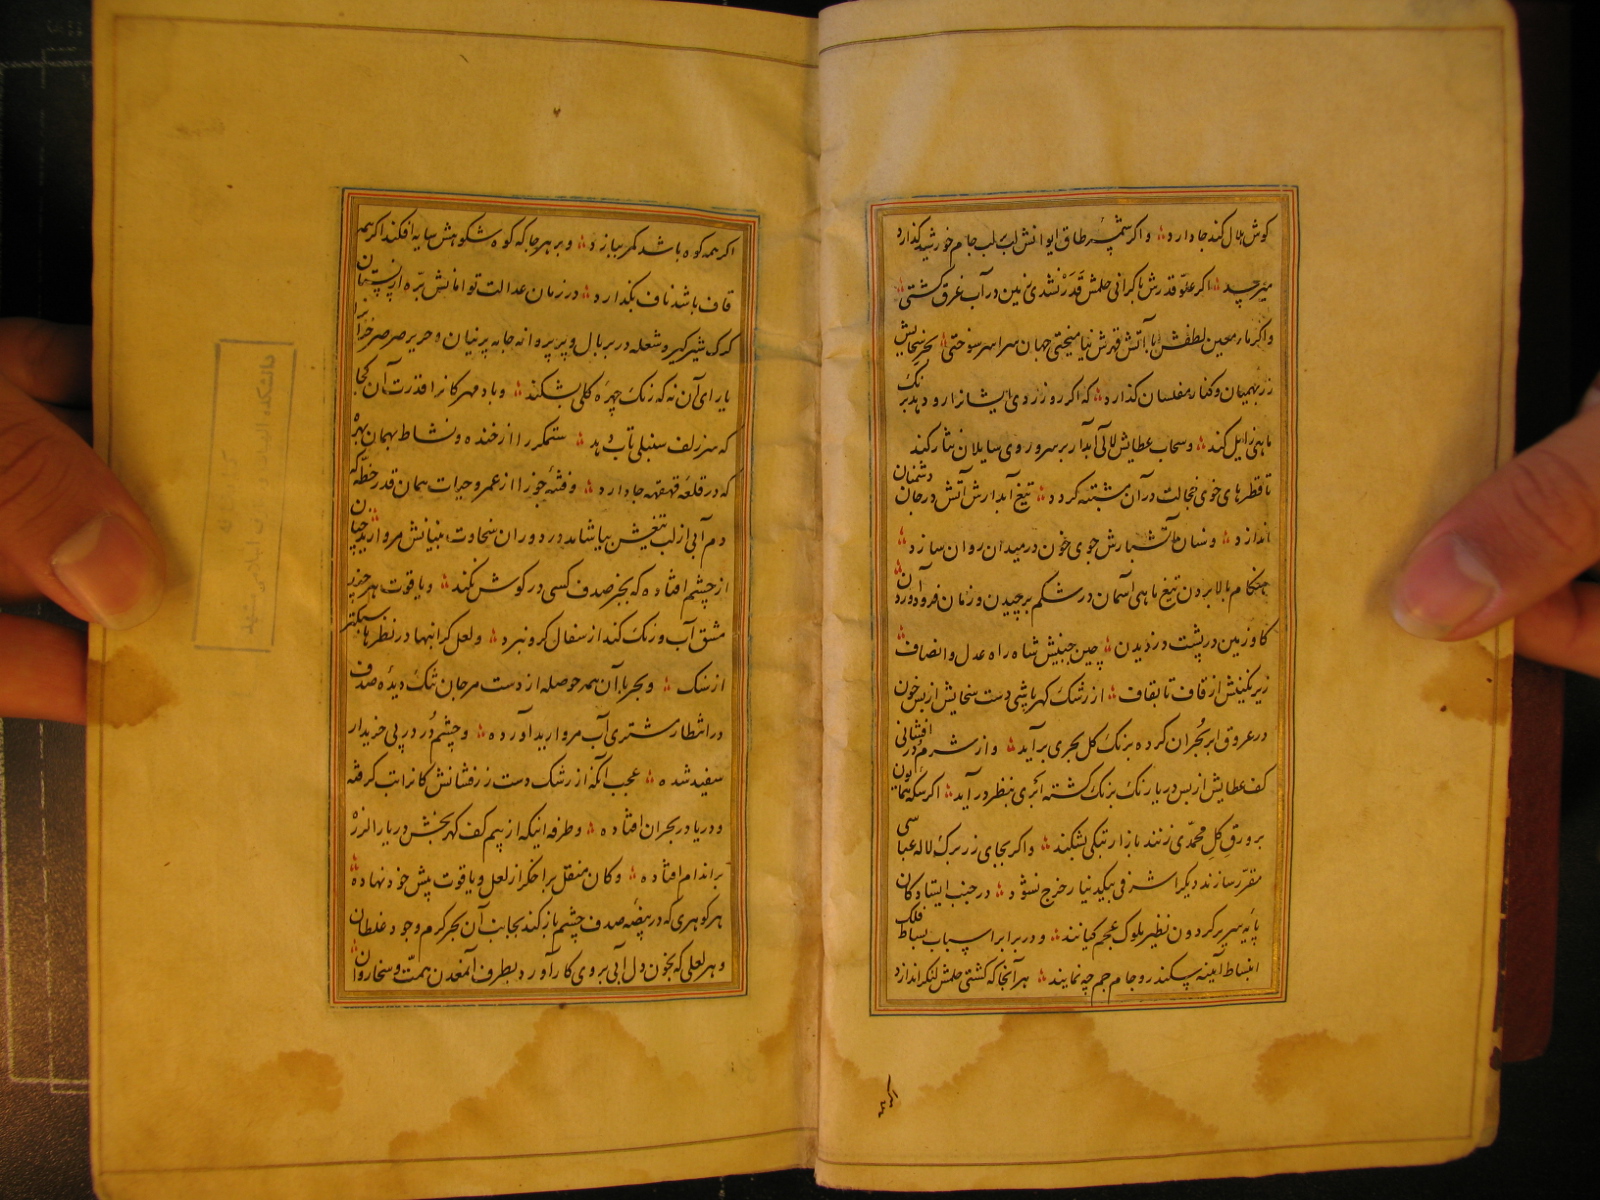 کوش هلال کند جا دارد ؞ و اکر شمسهٔ طاق ایوانش لب بر لب جام خورشید کذارد
میرسد ؞ اکر علو قدرش با کرانی حلمش قدر نشدی زمین در آب غرق کشتی ؞
و اکر ماء معین لطفش با آتش قهرش نیامیختی جهان سراسر سوختی ؞ بحر سخایش
زر بهمیان و کنار مفلسان کذارد ؞ که اکر روز روی ایشانرا رو دهد برنک
ماهی زایل کند ؞ و سحاب عطایش لآلی آبدار بر سر و روی سایلان نثار کند
تا قطرهای خوی خجالت در آن مشتبه کردد ؞ تیغ آبدارش آتش در جان دشمنان
اندازد ؞ و سنان آتشبارش جوی خون در میدان روان سازد ؞
هنکام بالا بردن تیغ ماهی آسمان در شکم برچیدن و زمان فرود آوردن ؞
کاو زمین در پشت دزدیدن ؞ چین جبینش شاه راه عدل و انصاف ؞
زیر نکینش از قاف تا بقاف ؞ از رشک کهرپاشی دست سخایش از بس خون
در عروق ابر بحران کرده برنک کل بحری برآید ؞ و از شرم در افشانی
کف عطایش از بس دریا رنک برنک کشته ابری بنظر درآید ؞ اکر سکه همایون
بر ورق کل محمدی زنند بازار تبکی بشکند ؞ و اکر بجای زر برک لاله عباسی
مقرر سازند دیکر اشرفی بیکدینار خرج نشود ؞ در جنب ایستادکان
پایه سریر کردون نظیر ملوک عجم کیانند ؞ و در برابر اسباب بساط فلک
انبساط آیینه سکندر و جام جم چه نمایند ؞ هر آنجا که کشتی حلمش لنکر اندازد
اکر همه
اکر همه کوه باشد کمر ببازد ؞ و بر هر جا که کوه شکوهش سایه افکند اکر همه
قاف باشد ناف بکذارد ؞ در زمان عدالت توامانش بره از پستان
کرک شیرکیر و شعله در بر بال و پر پروانه جامه پرنیان و حریر صرصر خزانرا
یارای آن نه که رنک چهرهٔ کلی بشکند ؞ و باد مهرکانرا قدرت آن کجا
که سر زلف سنبلی تاب دهد ؞ ستمکر را از خنده و نشاط بهمان بهره
که در قلعه قهقهه جا دارد ؞ و فتنه جو را از عمر و حیات همان قدر خطه که
دم آبی از لب تیغش بیاشامد در دوران سخاوت بنیانش مروارید چنان ؞
از چشم افتاده که بجز صدف کسی در کوش نکند ؞ و یاقوت هر چند
مشق آب و رنک کند از سفال کرو نبرد ؞ و لعل کرانبها در نظرها سبکتر
از سنک ؞ و بحر با آن همه حوصله از دست مرجان تنک دیده صدف
در انتظار مشتری آب مروارید آورده ؞ و چشم در در پی خریدار
سفید شده ؞ عجب آنکه از رشک دست زرفشانش کانرا تب کرفته
و دریا در بحران افتاده ؞ و طرفه اینکه از بیم کف کهربخش دریا را لرزه
بر اندام افتاده ؞ و کان منقل پر اخکر از لعل و یاقوت پیش خود نهاده ؞
هر کوهری که در بیضه صدف چشم باز کند بجانب آن بحر کرم وجود غلطان
و هر لعلی که بخون دل آبی بروی کار آورد بطرف آنمعدن همت و سخا روان ؞